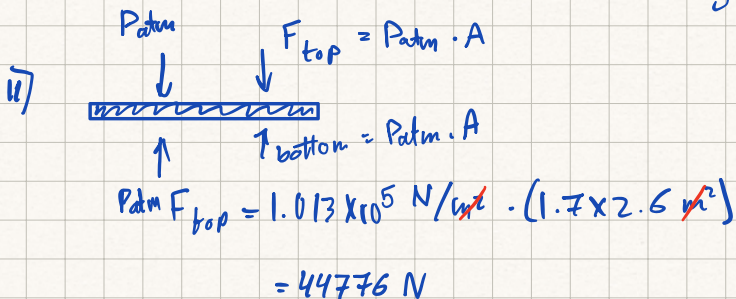 Patm
F top = Patm . A
11)
bottom = Patm . A
Patm
F top = 1.013 x10^5 N/m² . (1.7 x 2.6 m²)
= 44776 N